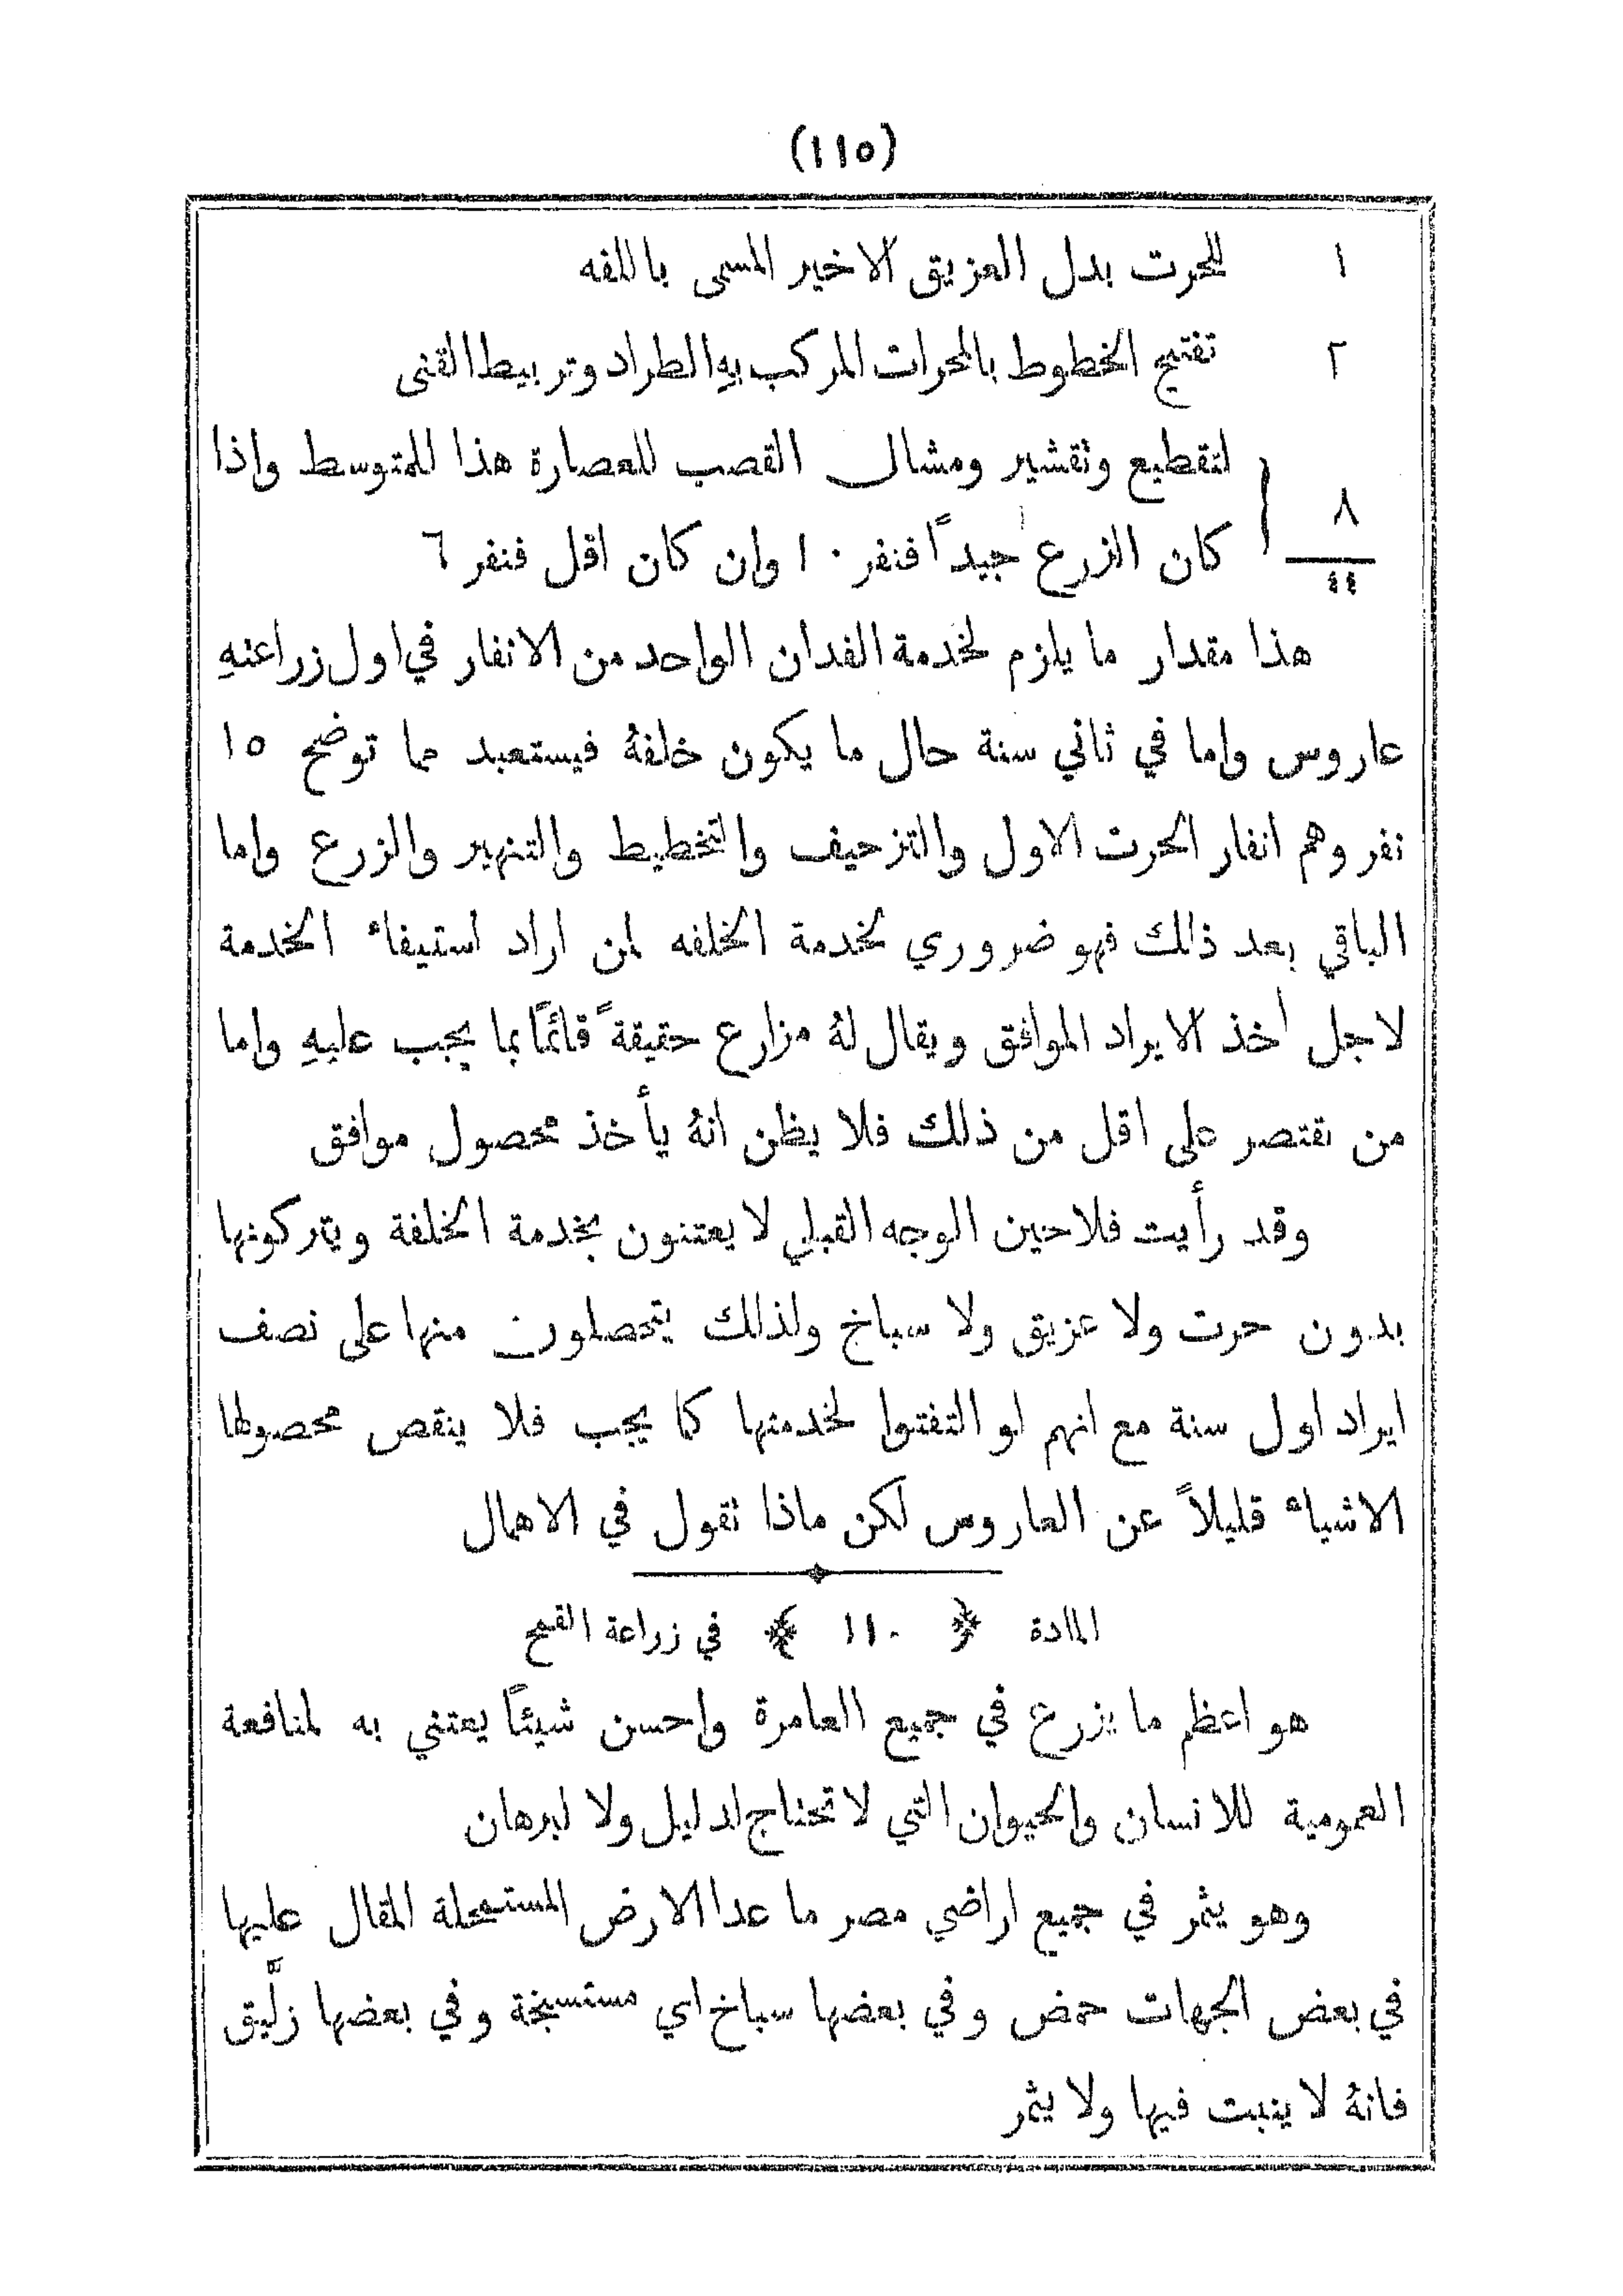 (١١٥)
١ للحرت بدل العزيق الاخير المسمى باللفه
٢ تفتيح الخطوط بالمحرات المركب بهِ الطراد وتربيط القنى
لتقطيع وتقشير ومشال القصب للعصارة هذا للمتوسط واذا
٨ كان الزرع جيداً فنفر ١٠ وان كان اقل فنفر ٦
٤٤
هذا مقدار ما يلزم لخدمة الفدان الواحد من الانفار في اول زراعتهِ
عاروس واما في ثاني سنة حال ما يكون خلفهُ فيستعبد مما توضح ١٥
نفر وهم انفار الحرت الاول والتزحيف والتخطيط والتنهير والزرع واما
الباقي بعد ذلك فهو ضروري لخدمة الخلفه لمن اراد استيفاء الخدمة
لاجل اخذ الايراد الموافق ويقال لهُ مزارع حقيقةً قائمًا بما يجب عليهِ واما
من تقتصر على اقل من ذلك فلا يظن انهُ يأخذ محصول موافق
وقد رأيت فلاحين الوجه القبلي لا يعتنون بخدمة الخلفة ويتركونها
بدون حرت ولا عزيق ولا سباخ ولذلك يتحصلون منها على نصف
ايراد اول سنة مع انهم لو التفتوا لخدمتها كما يجب فلا ينقص محصولها
الاشياء قليلاً عن العاروس لكن ماذا نقول في الاهمال
المادة ﴿ ١١٠ ﴾ في زراعة القمح
هو اعظم ما يزرع في جميع العامرة واحسن شيئاً يعتني به لمنافعة
العمومية للانسان والحيوان التي لا تحتاج لدليل ولا لبرهان
وهو يثمر في جميع اراضي مصر ما عدا الارض المستمحلة المقال عليها
في بعض الجهات حمض وفي بعضها سباخ اي مستسبخة وفي بعضها زلَّيق
فانهُ لا ينبت فيها ولا يثمر